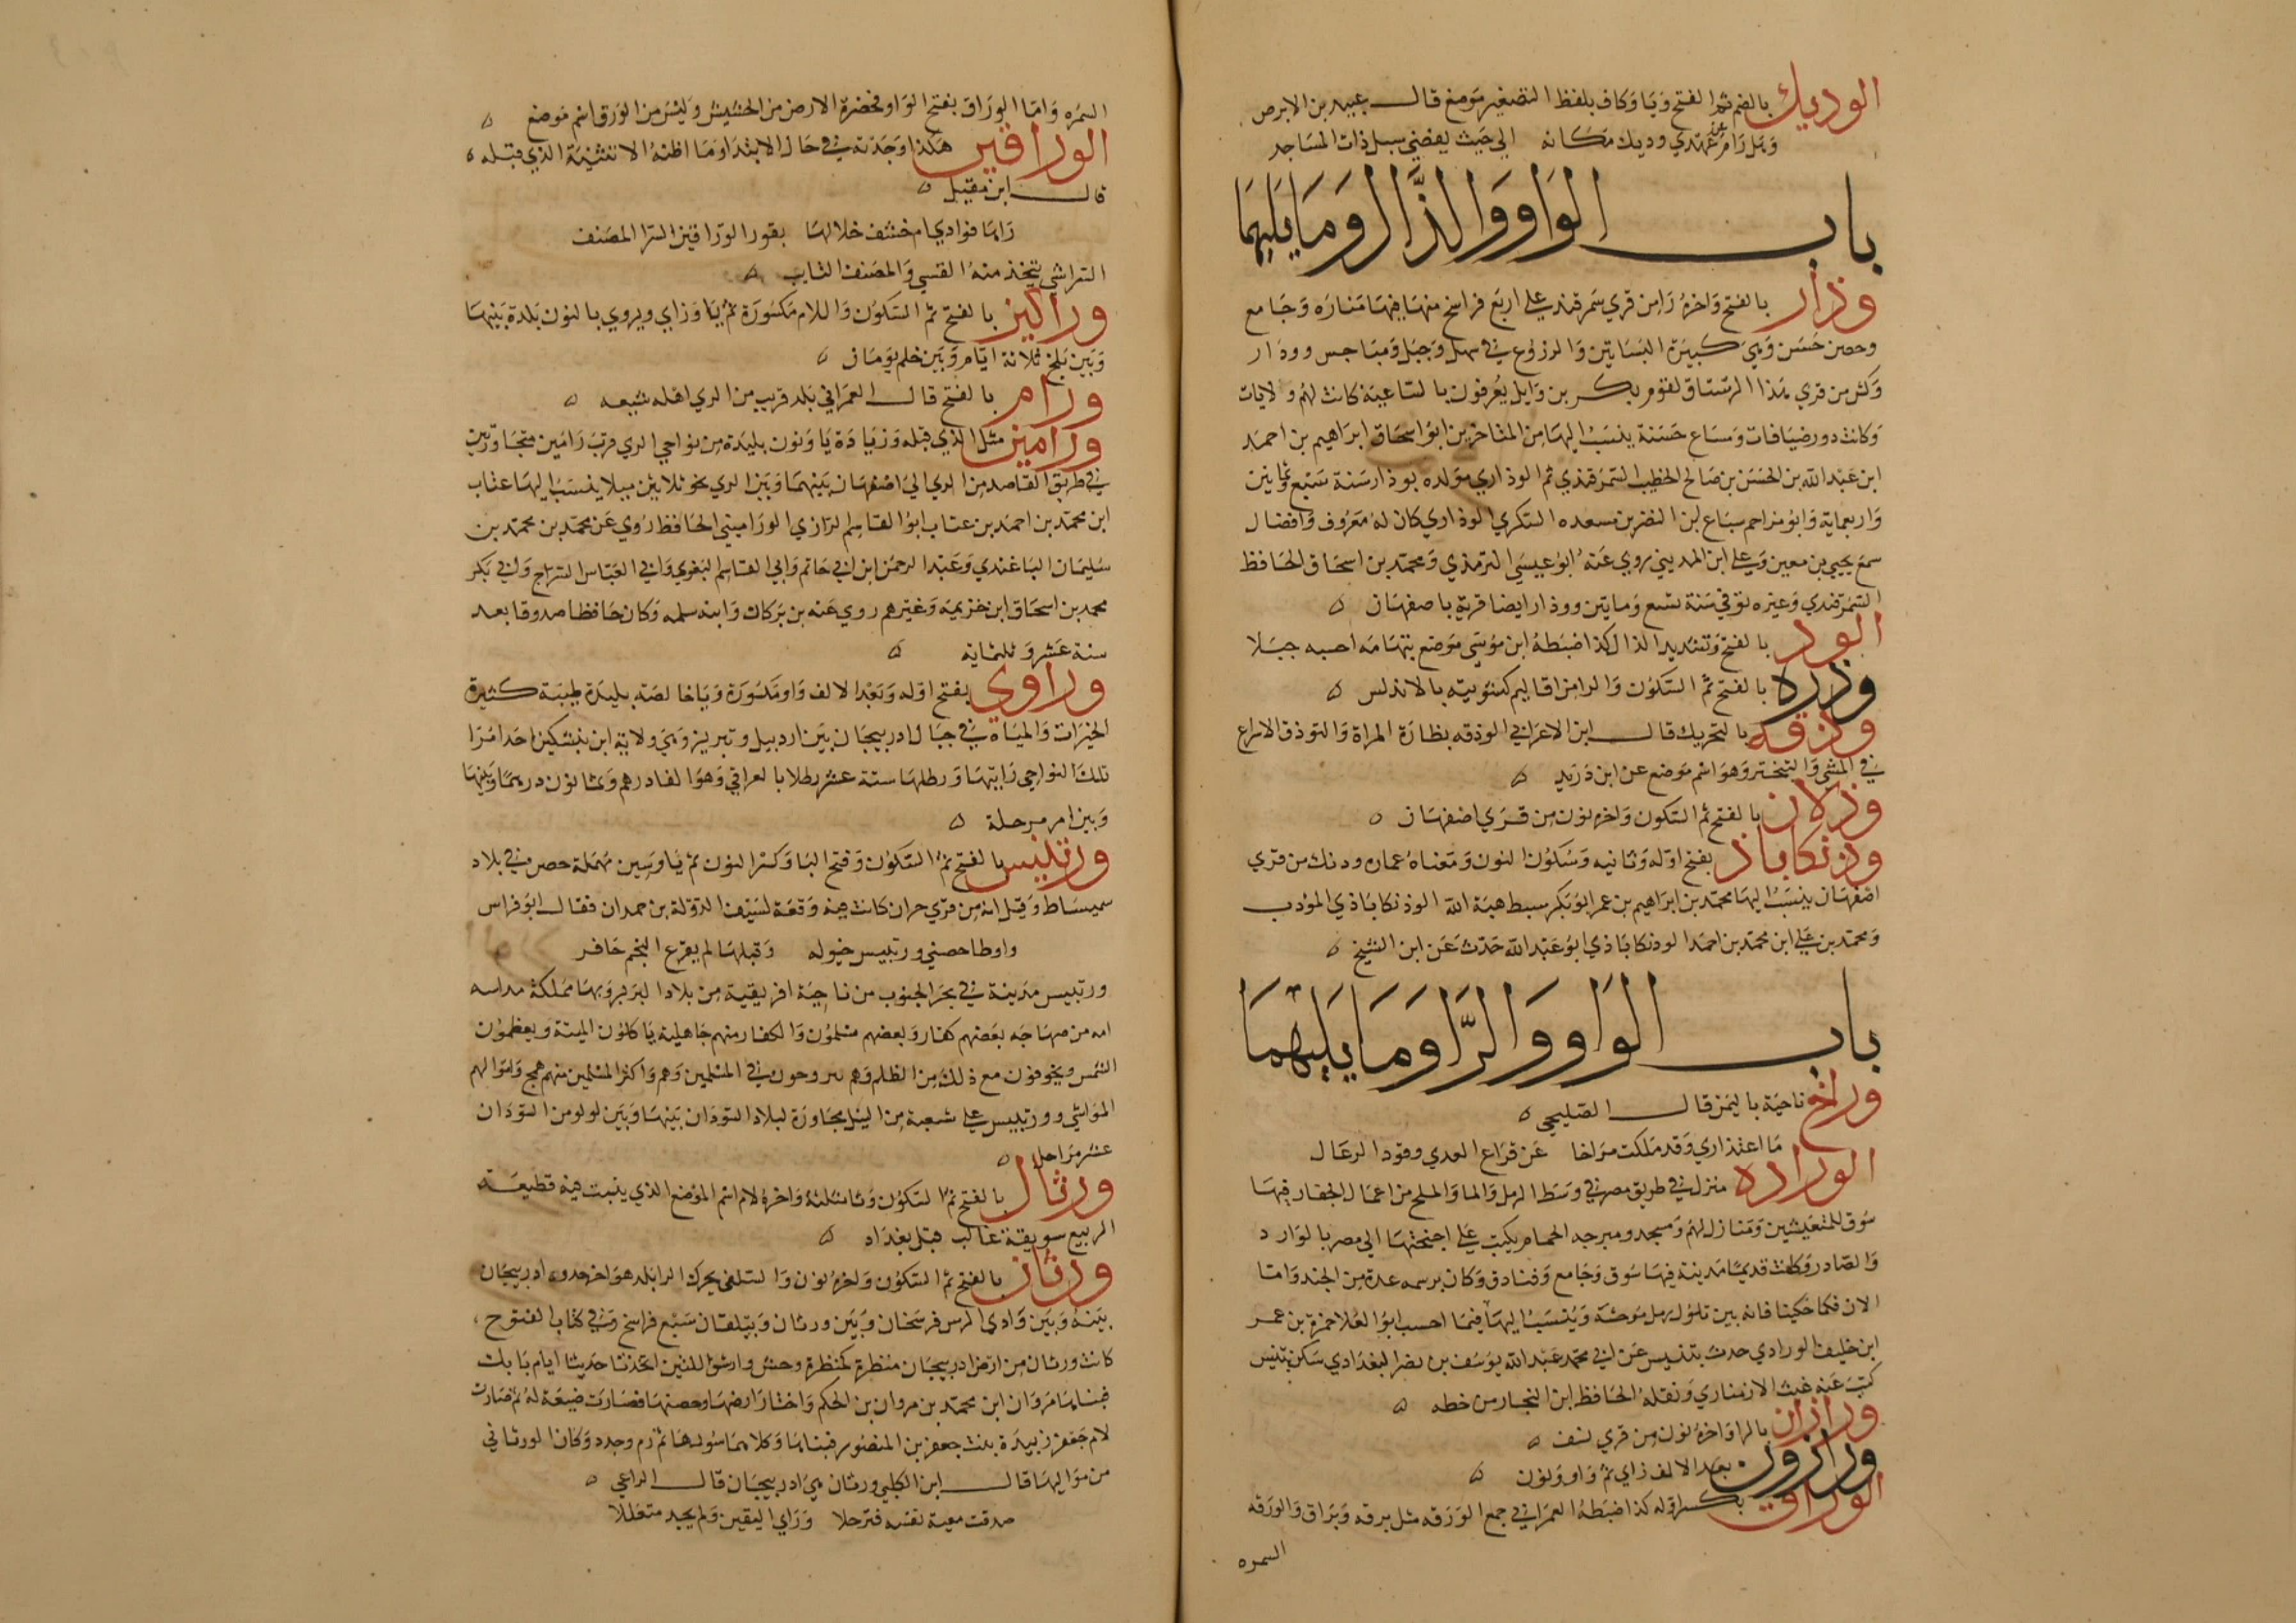 الوديك بالضم ثم الفتح ويا وكاف بلفظ التصغير موضع قال عبيد بن الابرص
وهل رام عن عهدي وديك مكانه الي حيث يفضي سيل ذات المساجد
باب الواو والذال وما يليهما
وذار بالفتح واخره را من قري سمرقند علي اربع فراسخ منها فيها منارة وجامع
وحصن حسن وهي كبيرة البساتين والزروع في سهل وجبل ومباخس ووذار
وكثر من قري هذا الرستاق لقوم بكر بن وايل يعرفون بالساعية كانت لهم ولايات
وكانت دور ضيافات ومساع حسنة ينسب اليها من المتاخرين ابو اسحاق ابراهيم بن احمد
ابن عبد الله بن الحسن بن صالح الخطيب السمرقندي ثم الوذاري مولده بوذار سنة سبع وثمانين
واربعماية وابو مزاحم سباع ابن النضر بن مسعده السكري الوذاري كان له معروف وافضال
سمع يحيي بن معين وعلي ابن المديني روي عنه ابو عيسي الترمذي ومحمد بن اسحاق الحافظ
السمرقندي وغيره توفي سنة تسع ومايتين ووذار ايضا قرية باصفهان
الوذ بالفتح وتشديد الذال كذا ضبطه ابن موسي موضع بتهامه احسبه جبلا
وذره بالفتح ثم السكون والرا من اقاليم كشوبيه بالاندلس
وذفه بالتحريك قال ابن الاعرابي الوذفه بظارة المراة والتوذف الاسراع
في المشي والتبختر وهو اسم موضع عن ابن دريد
وذلان بالفتح ثم السكون واخره نون من قري اصفهان
وذنكاباذ بفتح اوله وثانيه وسكون النون ومعناه عماره وذنك من قري
اصفهان ينسب اليها محمد بن ابراهيم بن عمر ابو بكر سبط هبة الله الوذنكاباذي المؤدب
ومحمد بن علي ابن محمد بن احمد الوذنكاباذي ابو عبد الله حدث عن ابن الشيخ
باب الواو والرا وما يليهما
وراخ ناحية باليمن قال الصليحي
ما اعتذاري وقد ملكت وراخا عن قراع العدي وقود الرعال
الوراده منزل في طريق مصر في وسط الرمل والما والملح من اعمال الجفار فيها
سوق للمتعيشين ومنازل لهم ومسجد ومبرجه الحمام يكتب علي اجنحتها الي مصر بالوارد
والصادر وكانت قديما مدينة فيها سوق وجامع وفنادق وكان برسمه عدة من الجند واما
الان فكما حكينا فانه بين تلول رمل موحشة وينسب اليها فيما احسب ابو العلا حمزة بن عمر
ابن خليف الورادي حدث بتنيس عن ابي محمد عبد الله يوسف بن نصر البغدادي سكن بتنيس
كتب عنه غيث الارمنازي ونقله الحافظ ابن النجار من خطه
ورازان بالرا واخره نون من قري نسف
ورازون بعد الالف زاي ثم واو ونون
الوراق بكسر اوله كذا ضبطه العمراني جمع الورقه مثل برقه وبراق والورقه
السمره
السمره واما الوراق بفتح الواو فخضرة الارض من الحشيش وليس من الورق اسم موضع
الوراقين هكذا وجدته في حال الابتدا وما اظنه الا تثنية الذي قبله
قال ابن مقبل
راها فوادي ام خشف خلالها بقور الوراقين السرا المصنف
السرا شي يتخذ منه القسي والمصنف الثابت
وراليز بالفتح ثم السكون واللام مكسورة ثم يا وزاي ويروي بالنون بلدة بينها
وبين بلخ ثلاثة ايام وبين خلم يومان
ورام بالفتح قال العمراني بلد قريب من الري اهله شيعه
ورامين مثل الذي قبله وزيادة يا ونون بليدة من نواحي الري قرب زامين متجاورتين
في طريق القاصد من الري الي اصفهان بينها وبين الري نحو ثلاثين ميلا ينسب اليها عتاب
ابن محمد بن احمد بن عتاب ابو القاسم الرازي الوراميني الحافظ روي عن محمد بن محمد بن
سليمان الباغندي وعبد الرحمن ابن ابي حاتم وابي القاسم البغوي وابي العباس السراج وابي بكر
محمد بن اسحاق ابن خزيمه وغيرهم روي عنه بن بركان وابنه سلمه وكان حافظا صدوقا بعد
سنة عشر وثلثماية
وراوي بفتح اوله وبعد الالف واو مكسورة ويا خالصه بليدة طيبة كثيرة
الخيرات والمياه في جبال ادربيجان بين اردبيل وتبريز وهي ولاية ابن بشكين احد امرا
تلك النواحي رايتها ورطلها ستة عشر رطلا بالعراقي وهو الف درهم وثمانون درهما وبينها
وبين اهر مرحلة
ورتنيس بالفتح ثم السكون وفتح التا وكسر النون ثم يا وسين مهملة حصن في بلاد
سميساط وقيل انه من قري حران كانت فيه وقعة لسيف الدولة بن حمدان فقال ابو فراس
واوطا حصني ورتنيس خيوله وقبلها لم يقرع النجم حافر
ورتنيس مدينة في بحر الجنوب من ناحية افريقية من بلاد البربر وبها مملكة مداسه
امه من صنهاجه بعضهم كفار وبعضهم مسلمون والكفار منهم جاهلية ياكلون الميتة ويعظمون
الشمس ويخوفون مع ذلك من الظلم وهم يتزوجون في المسلمين وهم واكثر المسلمين منهم همج واموالهم
المواشي وورتنيس علي شعبة من النيل مجاورة لبلاد السودان بينها وبين لولو من السودان
عشر مراحل
ورثال بالفتح ثم السكون وثا مثلثة واخره لام اسم الموضع الذي ينبت فيه قطيعة
الربيع سويقة غالب قبل بغداد
ورثان بالفتح ثم السكون واخره نون والسلفي يحرك الرا بلد هو اخر حدود ادربيجان
بينه وبين وادي الرس فرسخان وبين ورثان وبيلقان سبع فراسخ وفي كتاب الفتوح
كانت ورثان من ارض ادربيجان منظرة كمنظرة وحش وارشق اللتين اتخذتا حديثا ايام بابك
فبناها مروان ابن محمد بن مروان بن الحكم واختار ارضها وحصنها فصارت ضيعة له ثم صارت
لام جعفر زبيدة بنت جعفر بن المنصور فبناها وكلاها سورها ثم رم وجدد وكان الورثاني
من مواليها قال ابن الكلبي ورثان هي ادربيجان قال الراعي
صدقت معية نفسه فترحلا وراي اليقين ولم يجد متعللا